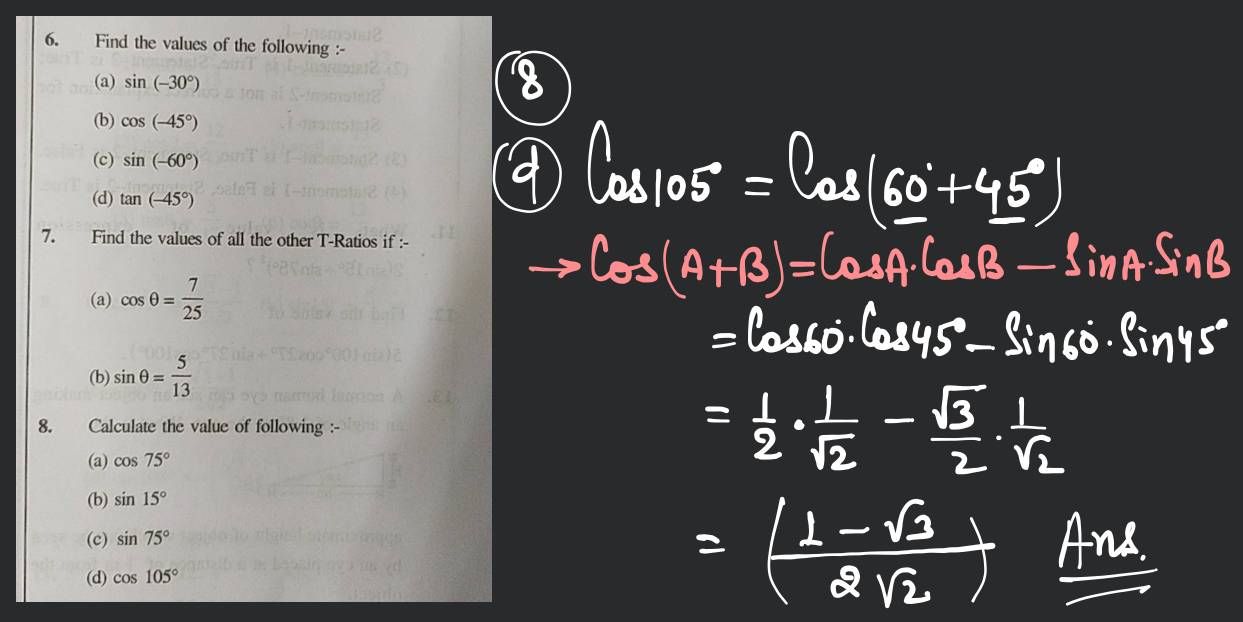 6. Find the values of the following :-
(a) sin (–30°)
(b) cos (–45°)
(c) sin (–60°)
(d) tan (–45°)
7. Find the values of all the other T-Ratios if :-
(a) cos θ = 7/25
(b) sin θ = 5/13
8. Calculate the value of following :-
(a) cos 75°
(b) sin 15°
(c) sin 75°
(d) cos 105°
8
d Cos105° = Cos(60°+45°)
→ Cos(A+B)=CosA·CosB – SinA·SinB
= Cos60°·Cos45° – Sin60°·Sin45°
= 1/2 · 1/√2 – √3/2 · 1/√2
= (1 – √3 / 2√2) Ans.